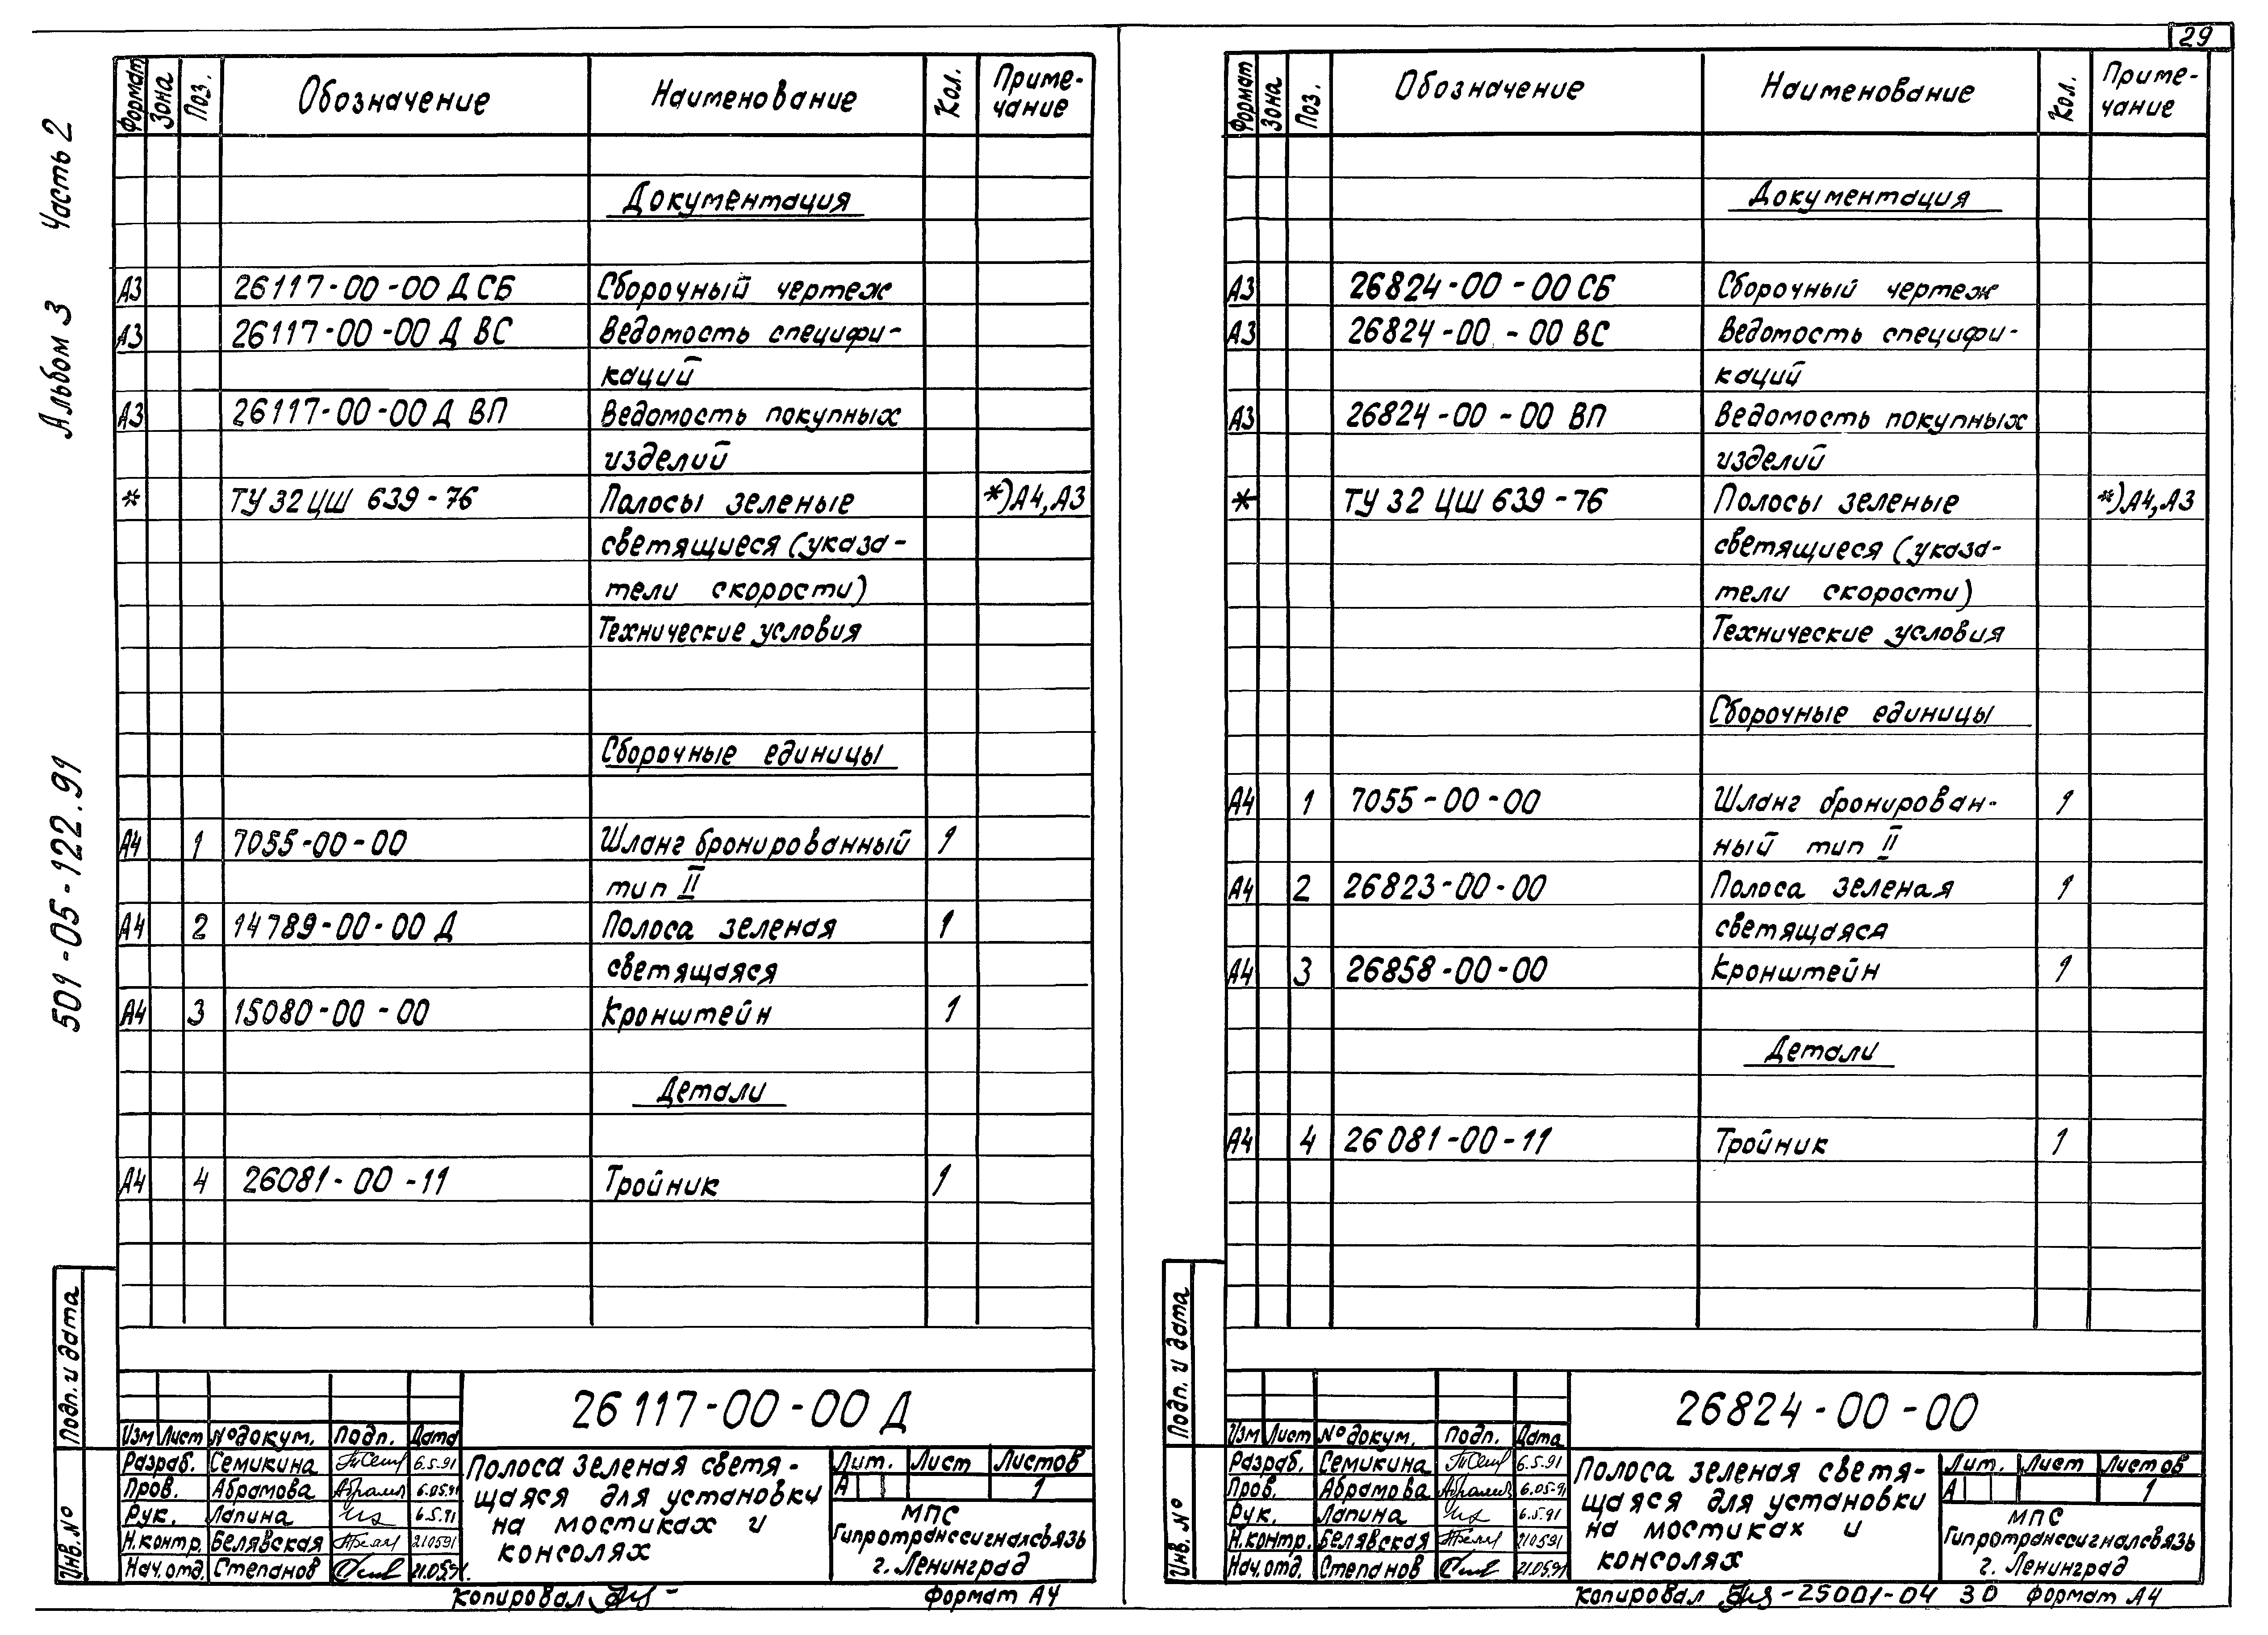 29
Альбом 3 Часть 2
501-05-122.91
Формат Зона Поз. Обозначение Наименование Кол. Приме-
чание
Документация
А3 26117-00-00 Д СБ Сборочный чертеж
А3 26117-00-00 Д ВС Ведомость специфи-
каций
А3 26117-00-00 Д ВП Ведомость покупных
изделий
* ТУ 32 ЦШ 639-76 Полосы зеленые *)А4,А3
светящиеся (указа-
тели скорости)
Технические условия
Сборочные единицы
А4 1 7055-00-00 Шланг бронированный 1
тип II
А4 2 14789-00-00 Д Полоса зеленая 1
светящаяся
А4 3 15080-00-00 Кронштейн 1
Детали
А4 4 26081-00-11 Тройник 1
Подп. и дата
Инв. №
26117-00-00 Д
Изм Лист № докум. Подп. Дата
Разраб. Семикина 6.5.91
Пров. Абрамова 6.05.91
Рук. Лапина 6.5.91
Н.контр. Белявская 210591
Нач.отд. Степанов 21.05.91.
Полоса зеленая светя-
щаяся для установки
на мостиках и
консолях
Лит. Лист Листов
А 1
МПС
Гипротранссигналсвязь
г. Ленинград
Копировал Формат А4
Формат Зона Поз. Обозначение Наименование Кол. Приме-
чание
Документация
А3 26824-00-00 СБ Сборочный чертеж
А3 26824-00-00 ВС Ведомость специфи-
каций
А3 26824-00-00 ВП Ведомость покупных
изделий
* ТУ 32 ЦШ 639-76 Полосы зеленые *)А4,А3
светящиеся (указа-
тели скорости)
Технические условия
Сборочные единицы
А4 1 7055-00-00 Шланг бронирован- 1
ный тип II
А4 2 26823-00-00 Полоса зеленая 1
светящаяся
А4 3 26858-00-00 Кронштейн 1
Детали
А4 4 26081-00-11 Тройник 1
Подп. и дата
Инв. №
26824-00-00
Изм Лист № докум. Подп. Дата
Разраб. Семикина 6.5.91
Пров. Абрамова 6.05-91
Рук. Лапина 6.5.91
Н.контр. Белявская 210591
Нач.отд. Степанов 21.05.91
Полоса зеленая светя-
щаяся для установки
на мостиках и
консолях
Лит. Лист Листов
А 1
МПС
Гипротранссигналсвязь
г. Ленинград
Копировал -25001-04 30 Формат А4